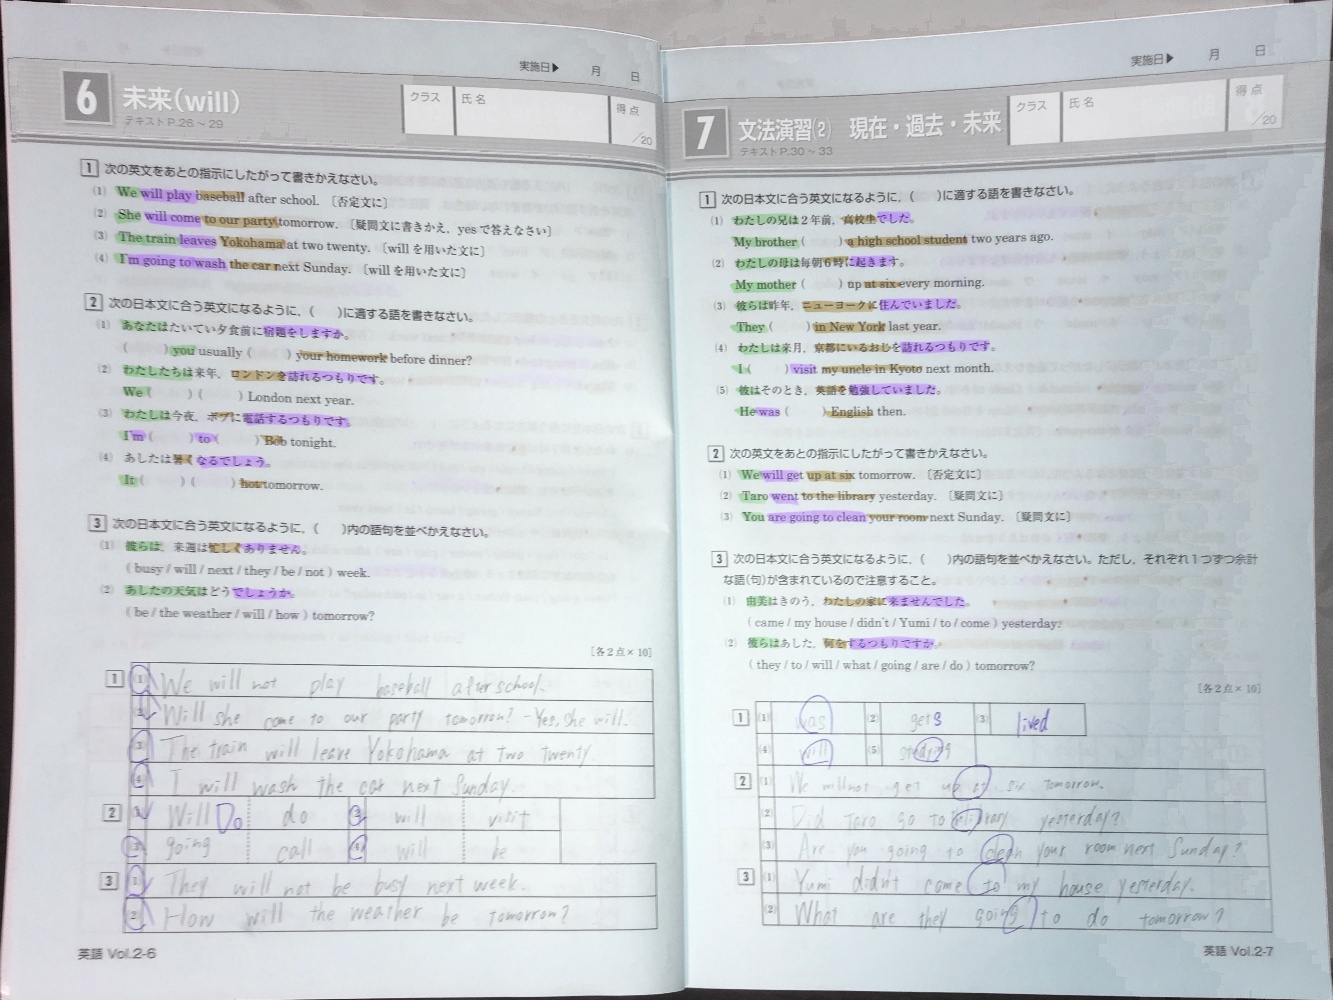 実施日▶ 月 日
6 未来(will)
テキストP.26～29
クラス 氏名 得点 /20
1 次の英文をあとの指示にしたがって書きかえなさい。
(1) We will play baseball after school. 〔否定文に〕
(2) She will come to our party tomorrow. 〔疑問文に書きかえ, yesで答えなさい〕
(3) The train leaves Yokohama at two twenty. 〔willを用いた文に〕
(4) I'm going to wash the car next Sunday. 〔willを用いた文に〕
2 次の日本文に合う英文になるように, ( )に適する語を書きなさい。
(1) あなたはたいてい夕食前に宿題をしますか。
( ) you usually ( ) your homework before dinner?
(2) わたしたちは来年, ロンドンを訪れるつもりです。
We ( ) ( ) London next year.
(3) わたしは今夜, ボブに電話するつもりです。
I'm ( ) to ( ) Bob tonight.
(4) あしたは暑くなるでしょう。
It ( ) ( ) hot tomorrow.
3 次の日本文に合う英文になるように, ( )内の語句を並べかえなさい。
(1) 彼らは, 来週は忙しくありません。
( busy / will / next / they / be / not ) week.
(2) あしたの天気はどうでしょうか。
( be / the weather / will / how ) tomorrow?
〔各2点×10〕
1 (1) We will not play baseball after school.
(2) Will she come to our party tomorrow? - Yes, she will.
(3) The train will leave Yokohama at two twenty.
(4) I will wash the car next Sunday.
2 (1) Will Do do (2) will visit
(3) going call (4) will be
3 (1) They will not be busy next week.
(2) How will the weather be tomorrow?
英語 Vol.2-6
実施日▶ 月 日
7 文法演習(2) 現在・過去・未来
テキストP.30～33
クラス 氏名 得点 /20
1 次の日本文に合う英文になるように, ( )に適する語を書きなさい。
(1) わたしの兄は2年前, 高校生でした。
My brother ( ) a high school student two years ago.
(2) わたしの母は毎朝6時に起きます。
My mother ( ) up at six every morning.
(3) 彼らは昨年, ニューヨークに住んでいました。
They ( ) in New York last year.
(4) わたしは来月, 京都にいるおじを訪れるつもりです。
I ( ) visit my uncle in Kyoto next month.
(5) 彼はそのとき, 英語を勉強していました。
He was ( ) English then.
2 次の英文をあとの指示にしたがって書きかえなさい。
(1) We will get up at six tomorrow. 〔否定文に〕
(2) Taro went to the library yesterday. 〔疑問文に〕
(3) You are going to clean your room next Sunday. 〔疑問文に〕
3 次の日本文に合う英文になるように, ( )内の語句を並べかえなさい。ただし, それぞれ1つずつ余計
な語(句)が含まれているので注意すること。
(1) 由美はきのう, わたしの家に来ませんでした。
( came / my house / didn't / Yumi / to / come ) yesterday.
(2) 彼らはあした, 何をするつもりですか。
( they / to / will / what / going / are / do ) tomorrow?
〔各2点×10〕
1 (1) was (2) gets (3) lived
(4) will (5)
2 (1) We will not get up at six tomorrow.
(2) Did Taro go to library yesterday?
(3) Are you going to clean your room next Sunday?
3 (1) Yumi didn't came to my house yesterday.
(2) What are they going to do tomorrow?
英語 Vol.2-7